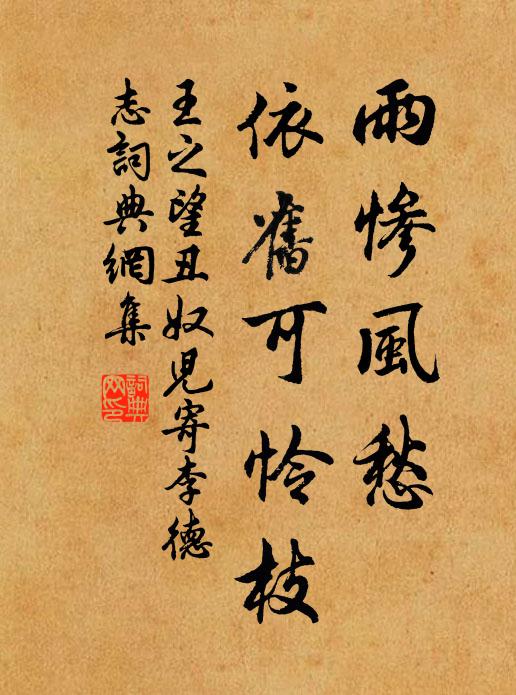 雨慘風愁
依舊可怜枝
王之望丑奴兒寄李德
志詞典網集
詞典
网印